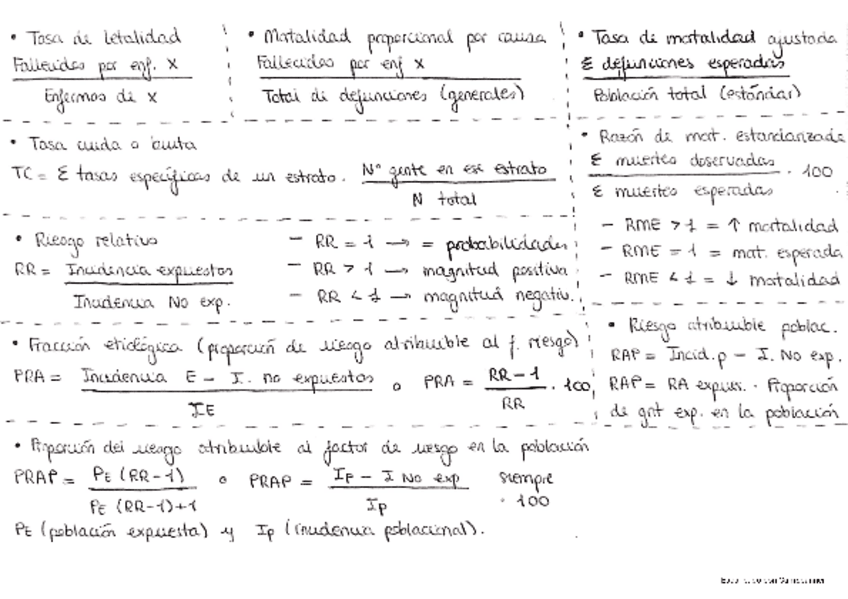 • Tasa de letalidad
Fallecidos por enf. x
Enfermos de x
• Mortalidad proporcional por causa
Fallecidos por enf x
Total de defunciones (generales)
• Tasa de mortalidad ajustada
Σ defunciones esperadas
Población total (estándar)
• Tasa cruda o bruta
TC = Σ tasas específicas de un estrato . Nº gente en ese estrato
N total
• Razón de mat. estandarizada
Σ muertes observadas · 100
Σ muertes esperadas
– RME > 1 = ↑ mortalidad
– RME = 1 = mat. esperada
– RME < 1 = ↓ mortalidad
• Riesgo relativo
RR = Incidencia expuestos
Incidencia No exp.
– RR = 1 → = probabilidades
– RR > 1 → magnitud positiva
– RR < 1 → magnitud negativ.
• Fracción etiológica (proporción de riesgo atribuible al f. riesgo)
PRA = Incidencia E – I. no expuestos o PRA = RR – 1 · 100
IE
RR
• Riesgo atribuible poblac.
RAP = Incid. p – I. No exp.
RAP = RA expues. · Proporción
de gnt exp. en la población
• Proporción del riesgo atribuible al factor de riesgo en la población
PRAP = PE (RR–1) o PRAP = Ip – I No exp siempre
PE (RR–1)+1
Ip
· 100
PE (población expuesta) y Ip (incidencia poblacional).